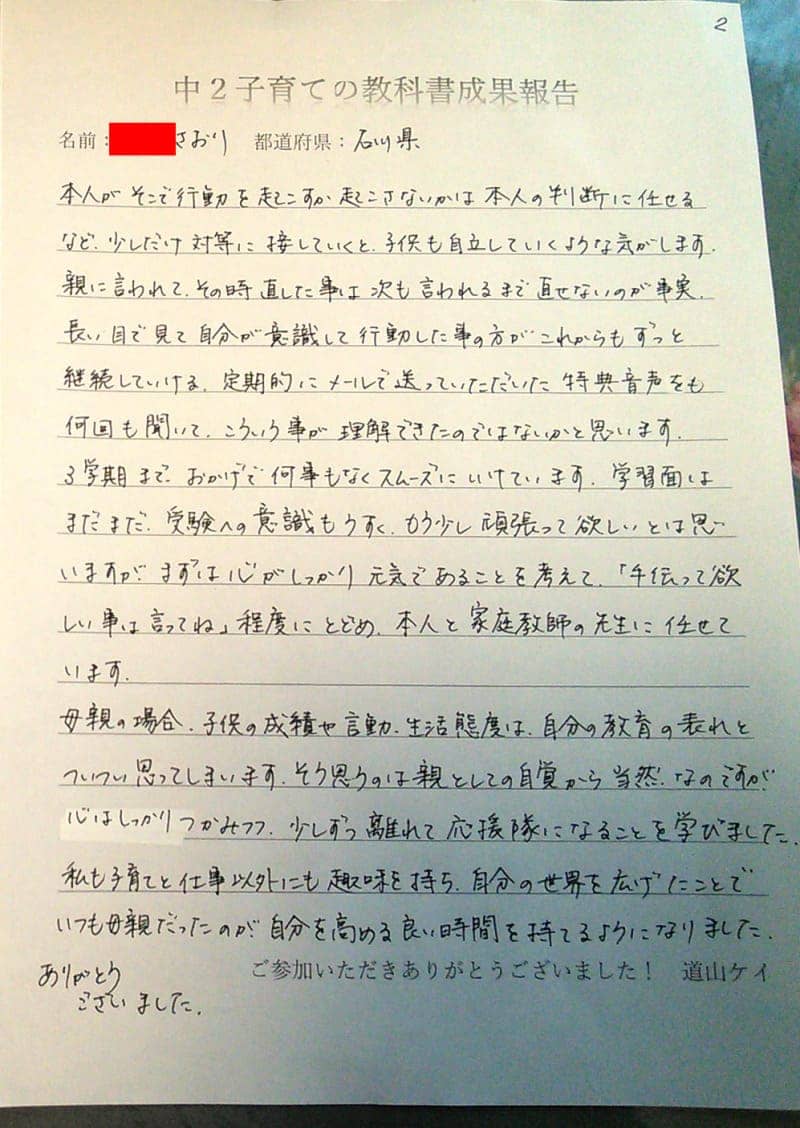 2
中2子育ての教科書成果報告
名前: さおり 都道府県:石川県
本人がそこで行動を起こすか起こさないかは本人の判断に任せる
など、少しだけ対等に接していくと、子供も自立していくような気がします。
親に言われて、その時直した事は次も言われるまで直せないのが事実。
長い目で見て自分が意識して行動した事の方がこれからもずっと
継続していける。定期的にメールで送っていただいた特典音声をも
何回も聞いて、こういう事が理解できたのではないかと思います。
3学期まで、おかげで何事もなくスムーズにいけています。学習面は
まだまだ、受験への意識もうすく、もう少し頑張って欲しいとは思
いますが まずは心がしっかり元気であることを考えて、「手伝って欲
しい事は言ってね」程度にとどめ、本人と家庭教師の先生に任せて
います。
母親の場合、子供の成績や言動、生活態度は、自分の教育の表れと
ついつい思ってしまいます。そう思うのは親としての自覚から当然、なのですが
心はしっかりつかみつつ、少しずつ離れて応援隊になることを学びました。
私も子育てと仕事以外にも趣味を持ち、自分の世界を広げたことで
いつも母親だったのが自分を高める良い時間を持てるようになりました。
ありがとう
ございました。
ご参加いただきありがとうございました! 道山ケイ